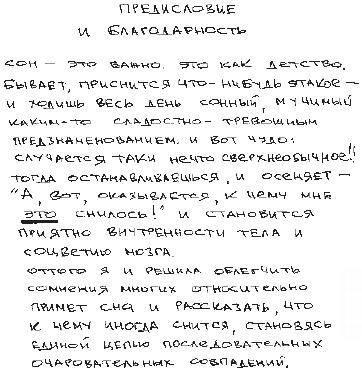 ПРЕДИСЛОВИЕ
И БЛАГОДАРНОСТЬ
СОН – ЭТО ВАЖНО. ЭТО КАК ДЕТСТВО.
БЫВАЕТ, ПРИСНИТСЯ ЧТО-НИБУДЬ ЭТАКОЕ –
И ХОДИШЬ ВЕСЬ ДЕНЬ СОННЫЙ, МУЧИМЫЙ
КАКИМ-ТО СЛАДОСТНО-ТРЕВОЖНЫМ
ПРЕДЗНАМЕНОВАНИЕМ. И ВОТ ЧУДО:
СЛУЧАЕТСЯ ТАКИ НЕЧТО СВЕРХНЕОБЫЧНОЕ!!
ТОГДА ОСТАНАВЛИВАЕШЬСЯ, И ОСЕНЯЕТ –
"А, ВОТ, ОКАЗЫВАЕТСЯ, К ЧЕМУ МНЕ
ЭТО СНИЛОСЬ!" И СТАНОВИТСЯ
ПРИЯТНО ВНУТРЕННОСТИ ТЕЛА И
СОЦВЕТИЮ МОЗГА.
ОТТОГО Я И РЕШИЛА ОБЛЕГЧИТЬ
СОМНЕНИЯ МНОГИХ ОТНОСИТЕЛЬНО
ПРИМЕТ СНА И РАССКАЗАТЬ, ЧТО
К ЧЕМУ ИНОГДА СНИТСЯ, СТАНОВЯСЬ
ЕДИНОЙ ЦЕПЬЮ ПОСЛЕДОВАТЕЛЬНЫХ
ОЧАРОВАТЕЛЬНЫХ СОВПАДЕНИЙ.